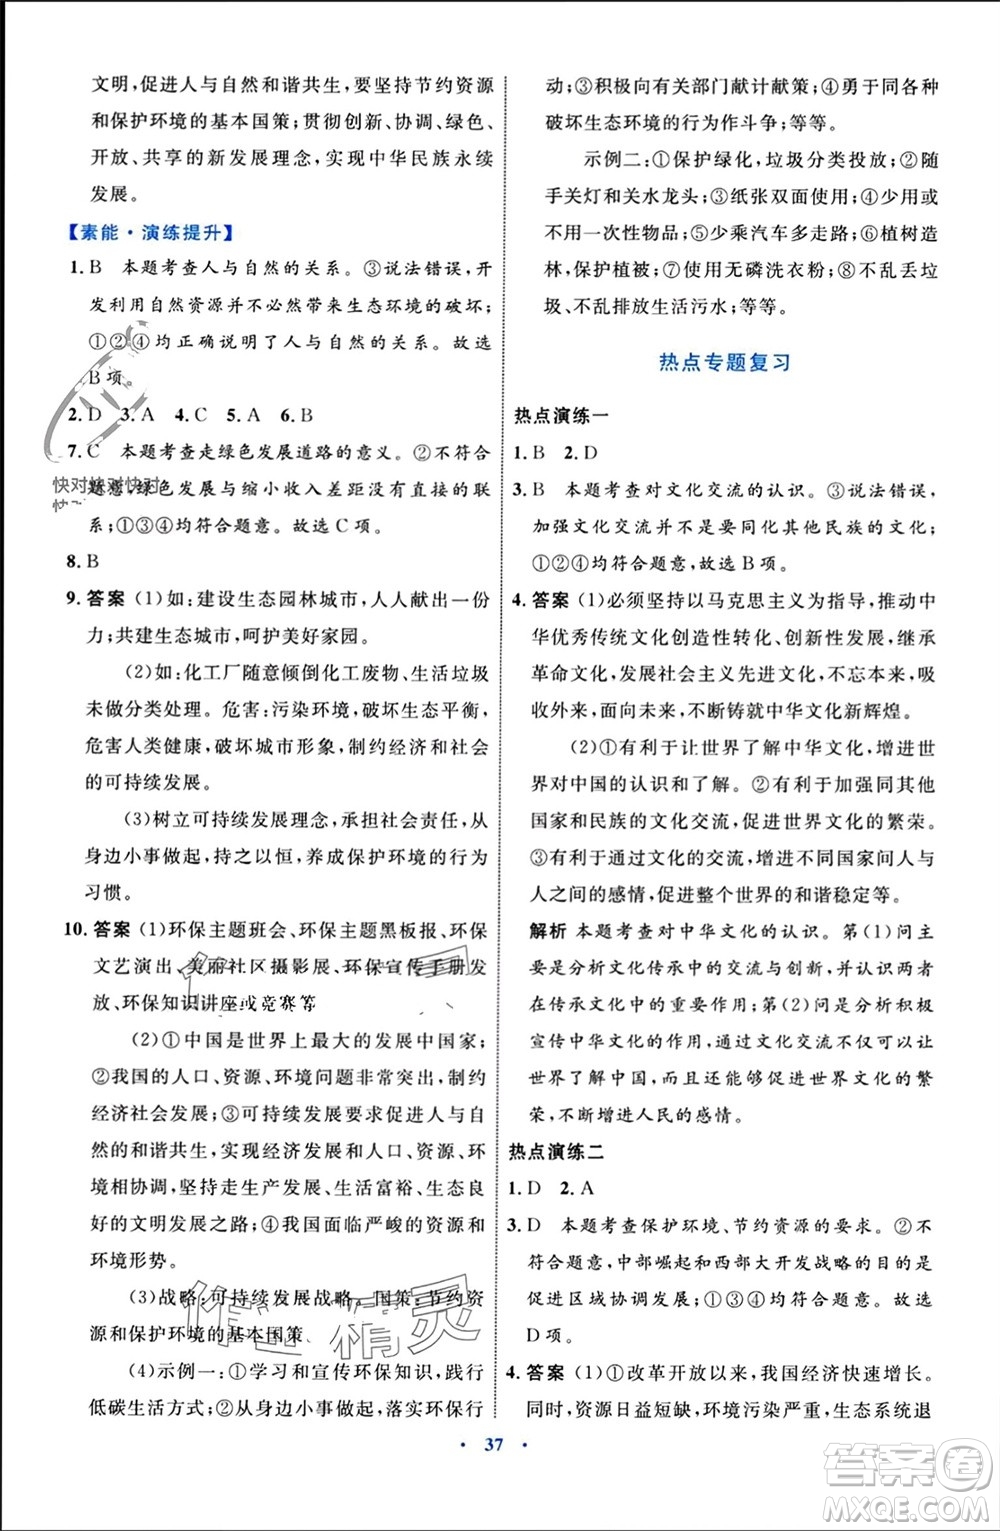 文明,促进人与自然和谐共生,要坚持节约资源
和保护环境的基本国策;贯彻创新、协调、绿色、
开放、共享的新发展理念,实现中华民族永续
发展。
【素能·演练提升】
1. B 本题考查人与自然的关系。③说法错误,开
发利用自然资源并不必然带来生态环境的破坏;
①②④均正确说明了人与自然的关系。故选
B项。
2. D 3. A 4. C 5. A 6. B
7. C 本题考查走绿色发展道路的意义。②不符合
题意,绿色发展与缩小收入差距没有直接的联
系;①③④均符合题意。故选C项。
8. B
9. 答案 (1)如:建设生态园林城市,人人献出一份
力;共建生态城市,呵护美好家园。
(2)如:化工厂随意倾倒化工废物、生活垃圾
未做分类处理。危害:污染环境,破坏生态平衡,
危害人类健康,破坏城市形象,制约经济和社会
的可持续发展。
(3)树立可持续发展理念,承担社会责任,从
身边小事做起,持之以恒,养成保护环境的行为
习惯。
10. 答案 (1)环保主题班会、环保主题黑板报、环保
文艺演出、美丽社区摄影展、环保宣传手册发
放、环保知识讲座或竞赛等
(2)①中国是世界上最大的发展中国家;
②我国的人口、资源、环境问题非常突出,制约
经济社会发展;③可持续发展要求促进人与自
然的和谐共生,实现经济发展和人口、资源、环
境相协调,坚持走生产发展、生活富裕、生态良
好的文明发展之路;④我国面临严峻的资源和
环境形势。
(3)战略:可持续发展战略。国策:节约资源
和保护环境的基本国策。
(4)示例一:①学习和宣传环保知识,践行
低碳生活方式;②从小事做起,落实环保行
动;③积极向有关部门献计献策;④勇于同
破坏生态环境的行为作斗争;等等。
示例二:①保护绿化,垃圾分类投放;②随
手关灯和关水龙头;③纸张双面使用;④少用或
不用一次性物品;⑤少乘汽车多走路;⑥植树造
林,保护植被;⑦使用无磷洗衣粉;⑧不乱丢垃
圾、不乱排放生活污水;等等。
热点专题复习
热点演练一
1. B 2. D
3. B 本题考查对文化交流的认识。③说法错误,
加强文化交流并不是要同化其他民族的文化;
①②④均符合题意,故选B项。
4. 答案 (1)必须坚持以马克思主义为指导,推动中
华优秀传统文化创造性转化、创新性发展,继承
革命文化,发展社会主义先进文化,不忘本来,吸
收外来,面向未来,不断铸就中华文化新辉煌。
(2)①有利于让世界了解中华文化,增进世
界对中国的认识和了解。②有利于加强其他
国家和民族的文化交流,促进世界文化的繁荣。
③有利于通过文化的交流,增进不同国家间人与
人之间的感情,促进整个世界的和谐稳定等。
解析 本题考查对中华文化的认识。第(1)问主
要是分析文化传承中的交流与创新,并认识两者
在传承文化中的重要作用;第(2)问是分析积极
宣传中华文化的作用,文化交流不仅可以让
世界了解中国,而且能够促进世界文化的繁
荣,不断增进人民的感情。
热点演练二
1. D 2. A
3. D 本题考查保护环境、节约资源的要求。②不
符合题意,中部崛起和西部大开发战略的目的是
促进区域协调发展;①③④均符合题意。故选
D项。
4. 答案 (1)①改革开放以来,我国经济快速增长。
同时,资源日益短缺,环境污染严重,生态系统退
• 37 •
快对快对快对
作业精灵
答案圈
MXQE.COM